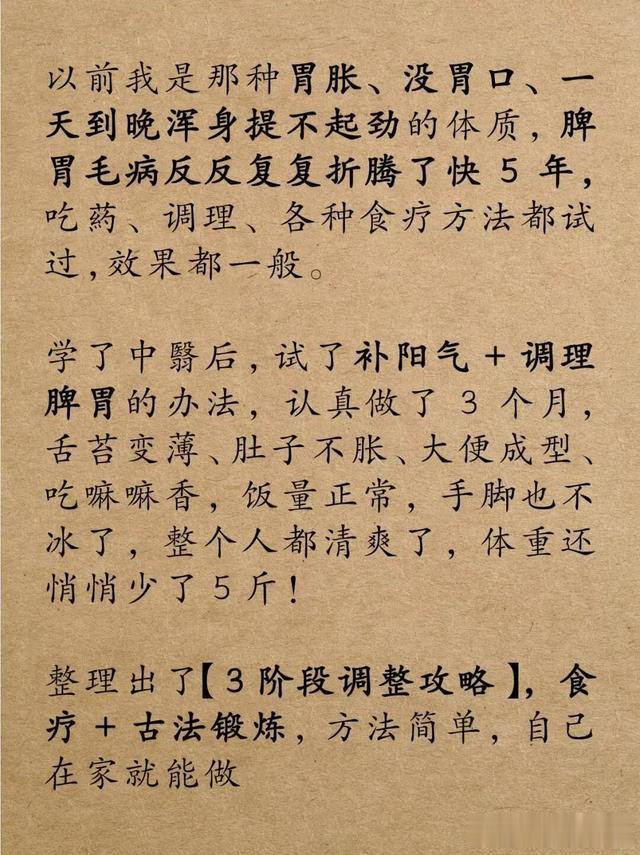 以前我是那种胃胀、没胃口、一
天到晚浑身提不起劲的体质，脾
胃毛病反反复复折腾了快 5 年，
吃葯、调理、各种食疗方法都试
过，效果都一般。
学了中翳后，试了补阳气 + 调理
脾胃的办法，认真做了 3 个月，
舌苔变薄、肚子不胀、大便成型、
吃嘛嘛香，饭量正常，手脚也不
冰了，整个人都清爽了，体重还
悄悄少了 5 斤！
整理出了【3 阶段调整攻略】，食
疗 + 古法锻炼，方法简单，自己
在家就能做